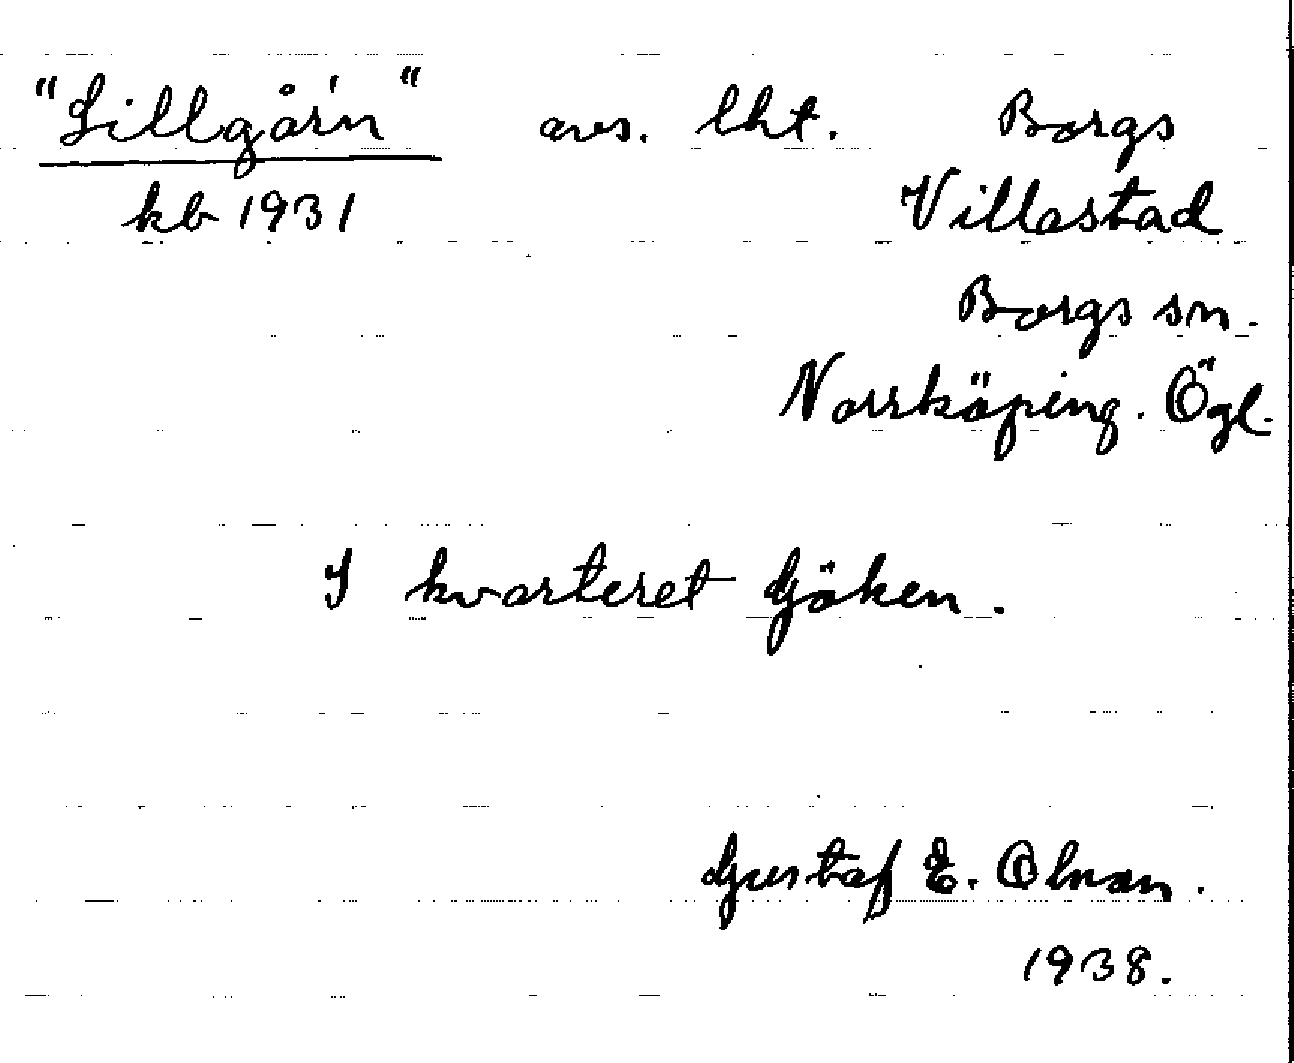 "Lillgår'n" avs. lht. Borgs
kb 1931 Villastad
Borgs sn.
Norrköping. Ögl.
I kvarteret Göken.
Gustaf E. Olman.
1938.